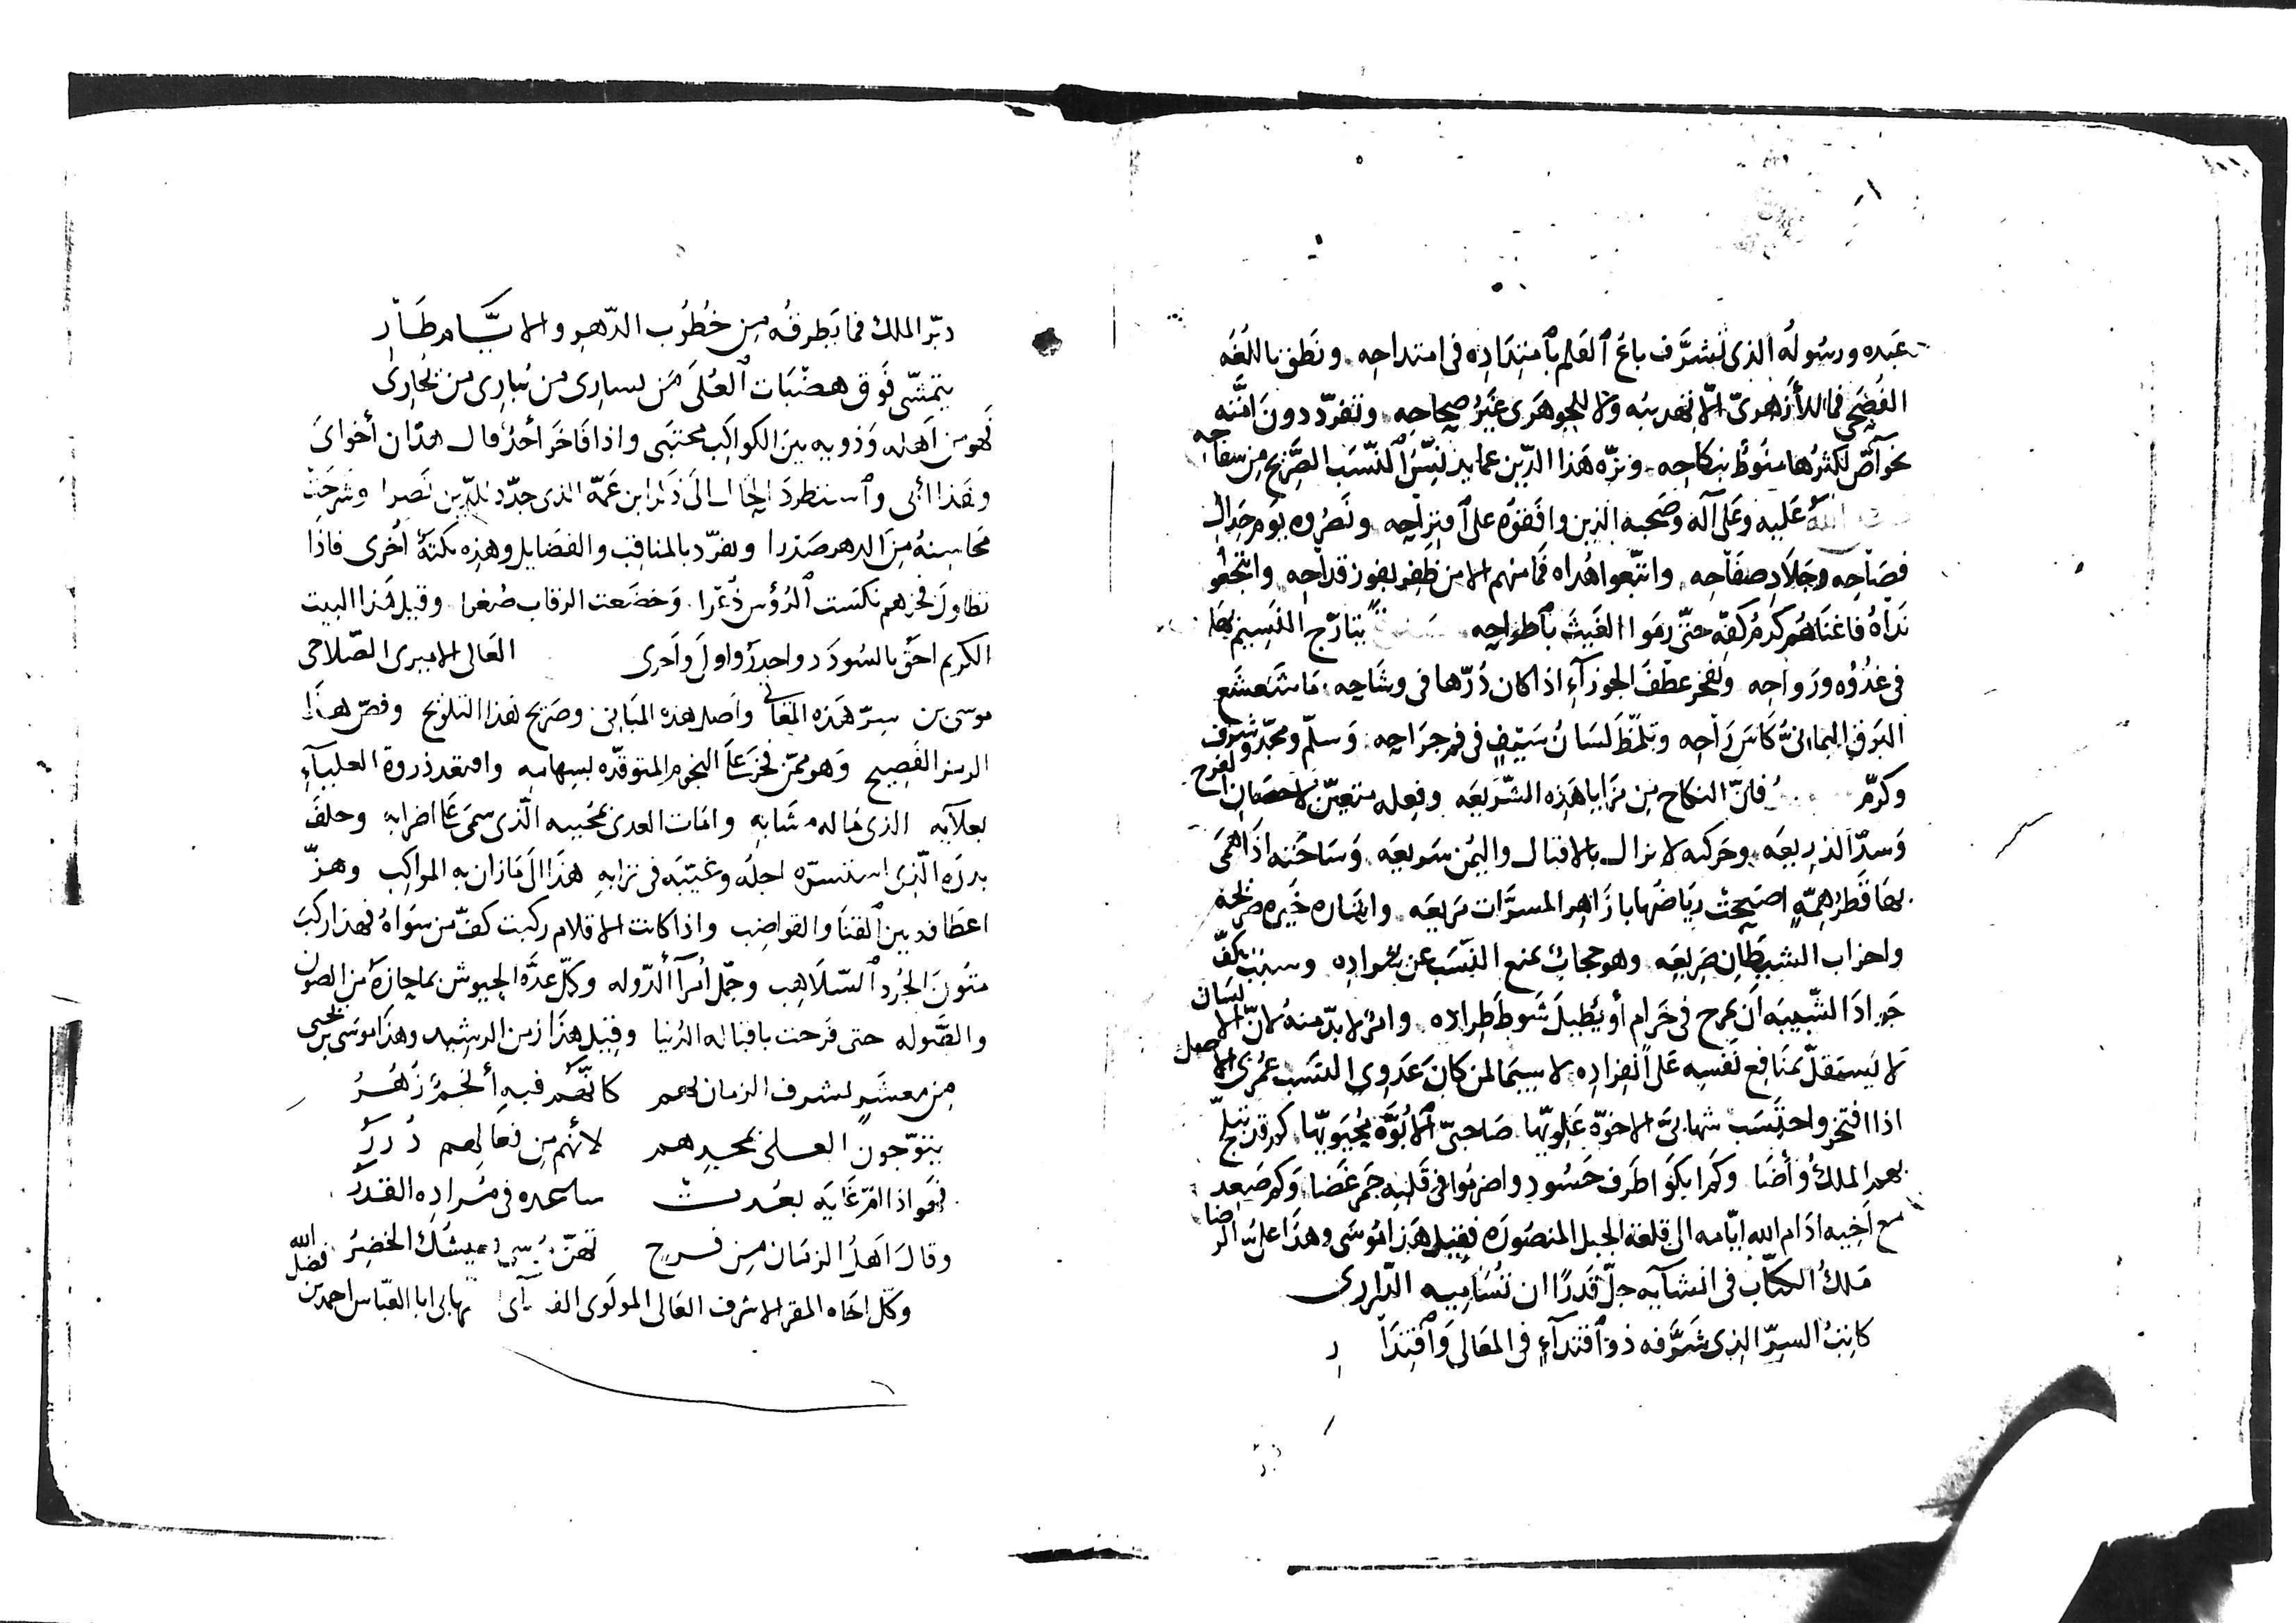 عبده ورسوله الذى تشرّف باع القلم بامتداده فى امتداحه ونطق باللغه
الفصحى فما للأزهرىّ الا تهذيبه ولا للجوهرى غير صحاحه وتفرّد دون امّته
بخواصّ اكثرها منوط بنكاحه ونزّه هذا الدّين عما يدنّس النّسب الصّريح من سفاحه
الله عليه وعلى آله وصحبه الذين وافقوه على امتزاجه ونصروه يوم جدال
فصاحه وجلاد صفاحه واتّبعوا هداه فما منهم الا من ظفر بفوز قداحه وانتجعوا
نداه فاغناهم كرم كفّه حتّى رموا الغيث باطراحه يتأرّج النسيم بها
فى غدوّه ورواحه وتفخر عطف الجوزآء اذا كان درّها فى وشاحه ما شعشع
البرق اليمانىّ كاس راحه وتلمّظ لسان سيفٍ فى فم جراحه وسلّم ومجّد وشرف
وكرّم فانّ النكاح من مزايا هذه الشّريعه وفعله متعيّن لاحصان الفرج
وسدّ الذريعه وحركته لا تزال بالاقبال واليمن سريعه وساحته اذا همى
بها قطر همّه اصبحت رياضها بازاهر المسرّات مريعه
واحزاب الشيطان صريعه وهو حجاب يمنع النّسب عن وسبب يكفّ
جواد الشّبيبه ان يمرح فى حرام أو يطيل شوط طراده وامر لا بدّ منه لانّ الانسان
لا يستقلّ بمنافع نفسه على انفراده لا سيما لمن كان عدوىّ النسب عمرىّ الاصل
اذا افتخر واحتسب شهابىّ الاخوّة علويّها صاحبىّ الابوّة يحيويّها كم قد تبلّج
بهم الملك وأضا وكم ابكوا طرف حسود واضرموا فى قلبه جمر غضا وكم صعد
مع اخيه ادام الله ايّامه الى قلعة الجبل المنصوره فقيل هذا موسى وهذا علىّ الرضا
ملك الكتّاب فى انشآيه جلّ قدرًا ان تساميه الدّرارى
كاتب السرّ الذى شرّفه ذو اقتدآءٍ فى المعالى واقتدار
دبّر الملك فما يطرقه من خطوب الدّهر والايّام طار
يتمشّى فوق هضبات العلى من يسارى من يبارى من يجارى
فهو من اهله وذويه بين الكواكب محتبى واذا فاخر أحد قال هذان أخواى
وهذا أبى واستطرد الحال الى ذكر ابن عمّه الذى جدّد للدّين نصرا وشرحت
محاسنه من الدهر صدرا وتفرّد بالمناقب والفضايل وهذه نكتة أخرى فاذا
تطاول فخرهم نكست الرؤس ذعرا وخضعت الرقاب صغرا وقيل هذا البيت
الكريم احق بالسودد واجدر واولى واحرى العالى الاميرى الصّلاحى
موسى بن سرّ هذه المعانى واصل هذه المبانى وصريح هذا التلويح وفصّ هذا
الرمز الفصيح وهو ممّن فخر على النجوم المتوقّده بسهامه واقتعد ذروة العليآء
بعلآيه الذى ما له مشابه وامات العدى بمحييه الّذى سمى على اضرابه وخلف
بدره الّذى استسرّه اجله وغيّبه فى ترابه هذا الى ما زان به المواكب وهزّ
اعطافه بين القنا والقواضب واذا كانت الاقلام ركبت كفّ من سواه فهذا ركب
متون الجرد السّلاهب وجمّل أمرآ الدّوله وكمّل عدّة الجيوش بما حازه من الصون
والصّوله حتى فرحت باقباله الدّنيا وقيل هذا زمن الرشيد وهذا موسى بن يحيى
من معشرٍ لشرف الزمان بهم كانّهم فيه أنجمٌ زهرُ
يتوّجون العلى بمجدهم لأنهم من فعالهم درر
فهو اذا امّ غايه بعدت ساعده فى مراده القدر
وقال اهل الزمان من فرح تهنّ موسى عيشك الخضر
وكمّل اخاه المقر الاشرف العالى المولوى الشهابى ابا العبّاس احمد بن فضل الله